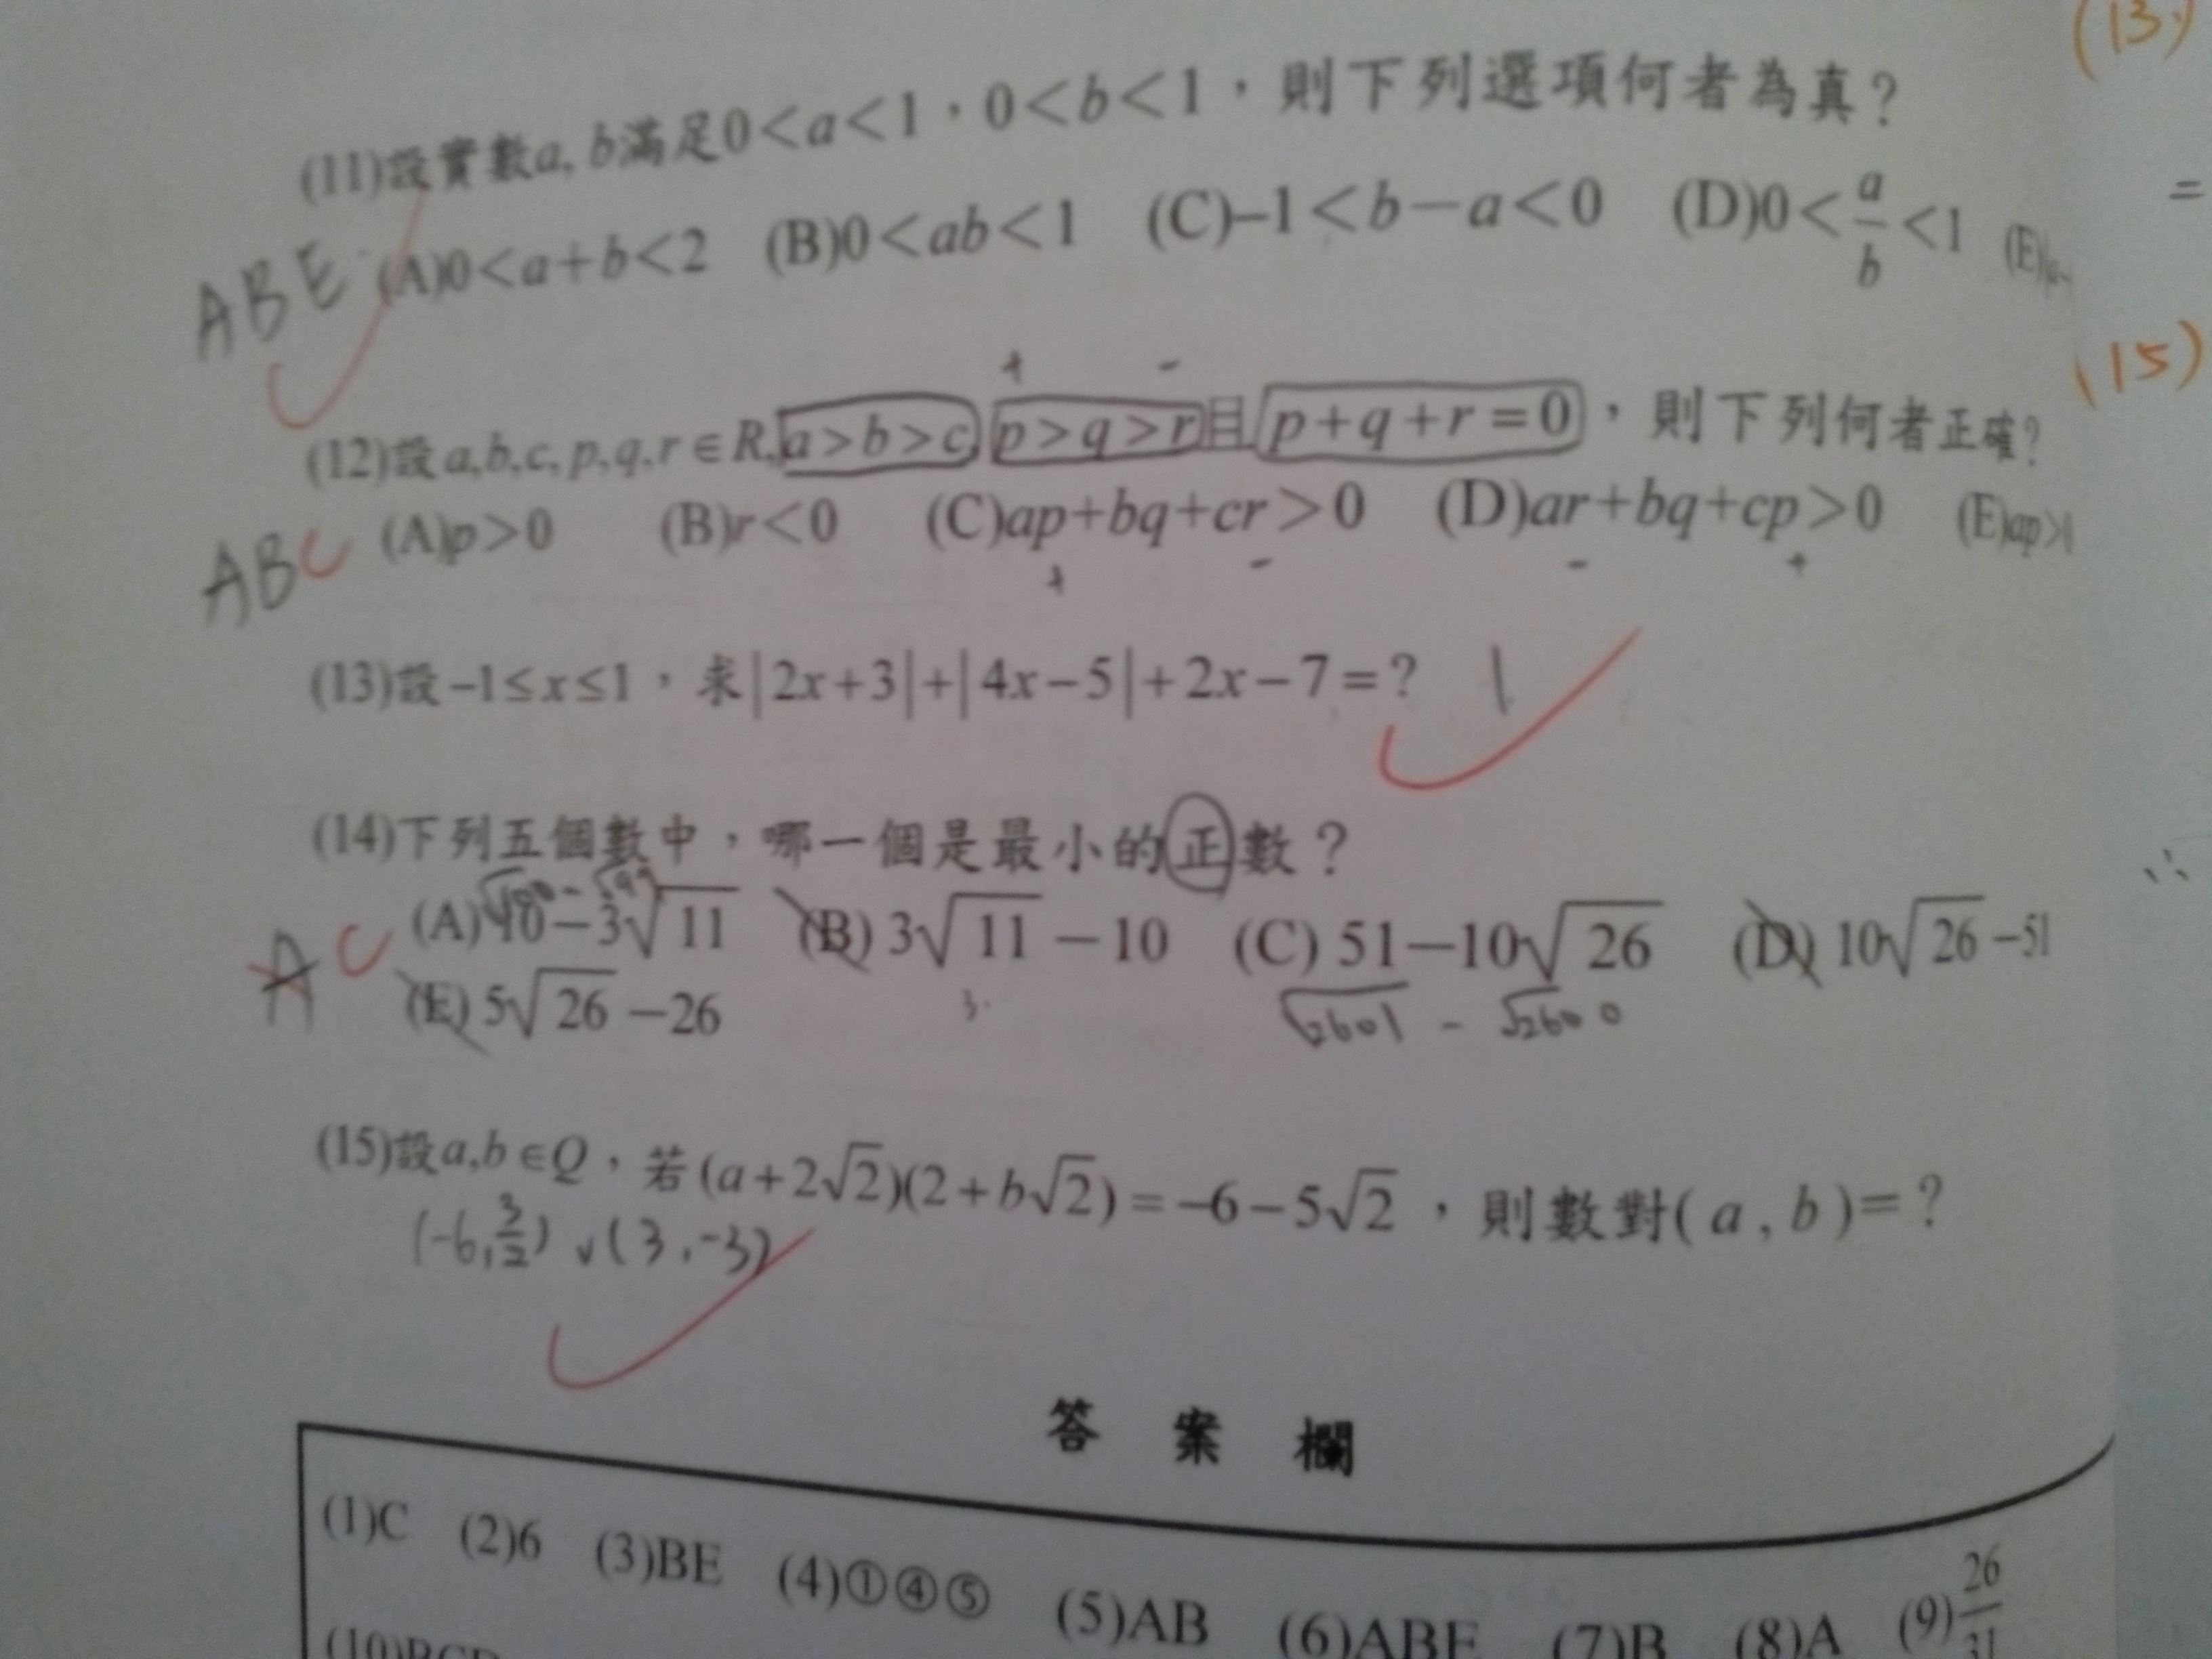 (13)
(11)設實數a, b滿足0<a<1，0<b<1，則下列選項何者為真？
=
ABE (A)0<a+b<2 (B)0<ab<1 (C)–1<b−a<0 (D)0<a/b<1 (E)
+ −
(15)
(12)設a,b,c,p,q,r∈R,a>b>c, p>q>r且p+q+r=0，則下列何者正確?
ABC (A)p>0 (B)r<0 (C)ap+bq+cr>0 (D)ar+bq+cp>0 (E)ap>
+ − − +
(13)設–1≤x≤1，求|2x+3|+|4x−5|+2x−7=? 1
(14)下列五個數中，哪一個是最小的正數？
√100 − √99
A C (A)10−3√11 (B) 3√11−10 (C) 51−10√26 (D) 10√26−51
(E) 5√26−26
√2601 − √2600
(15)設a,b∈Q，若(a+2√2)(2+b√2)=−6−5√2，則數對(a,b)=?
(-6, 3/2) ∨ (3, -3)
答案欄
(1)C (2)6 (3)BE (4)①④⑤ (5)AB (6)ABE (7)B (8)A (9)26/31
(10)BCD